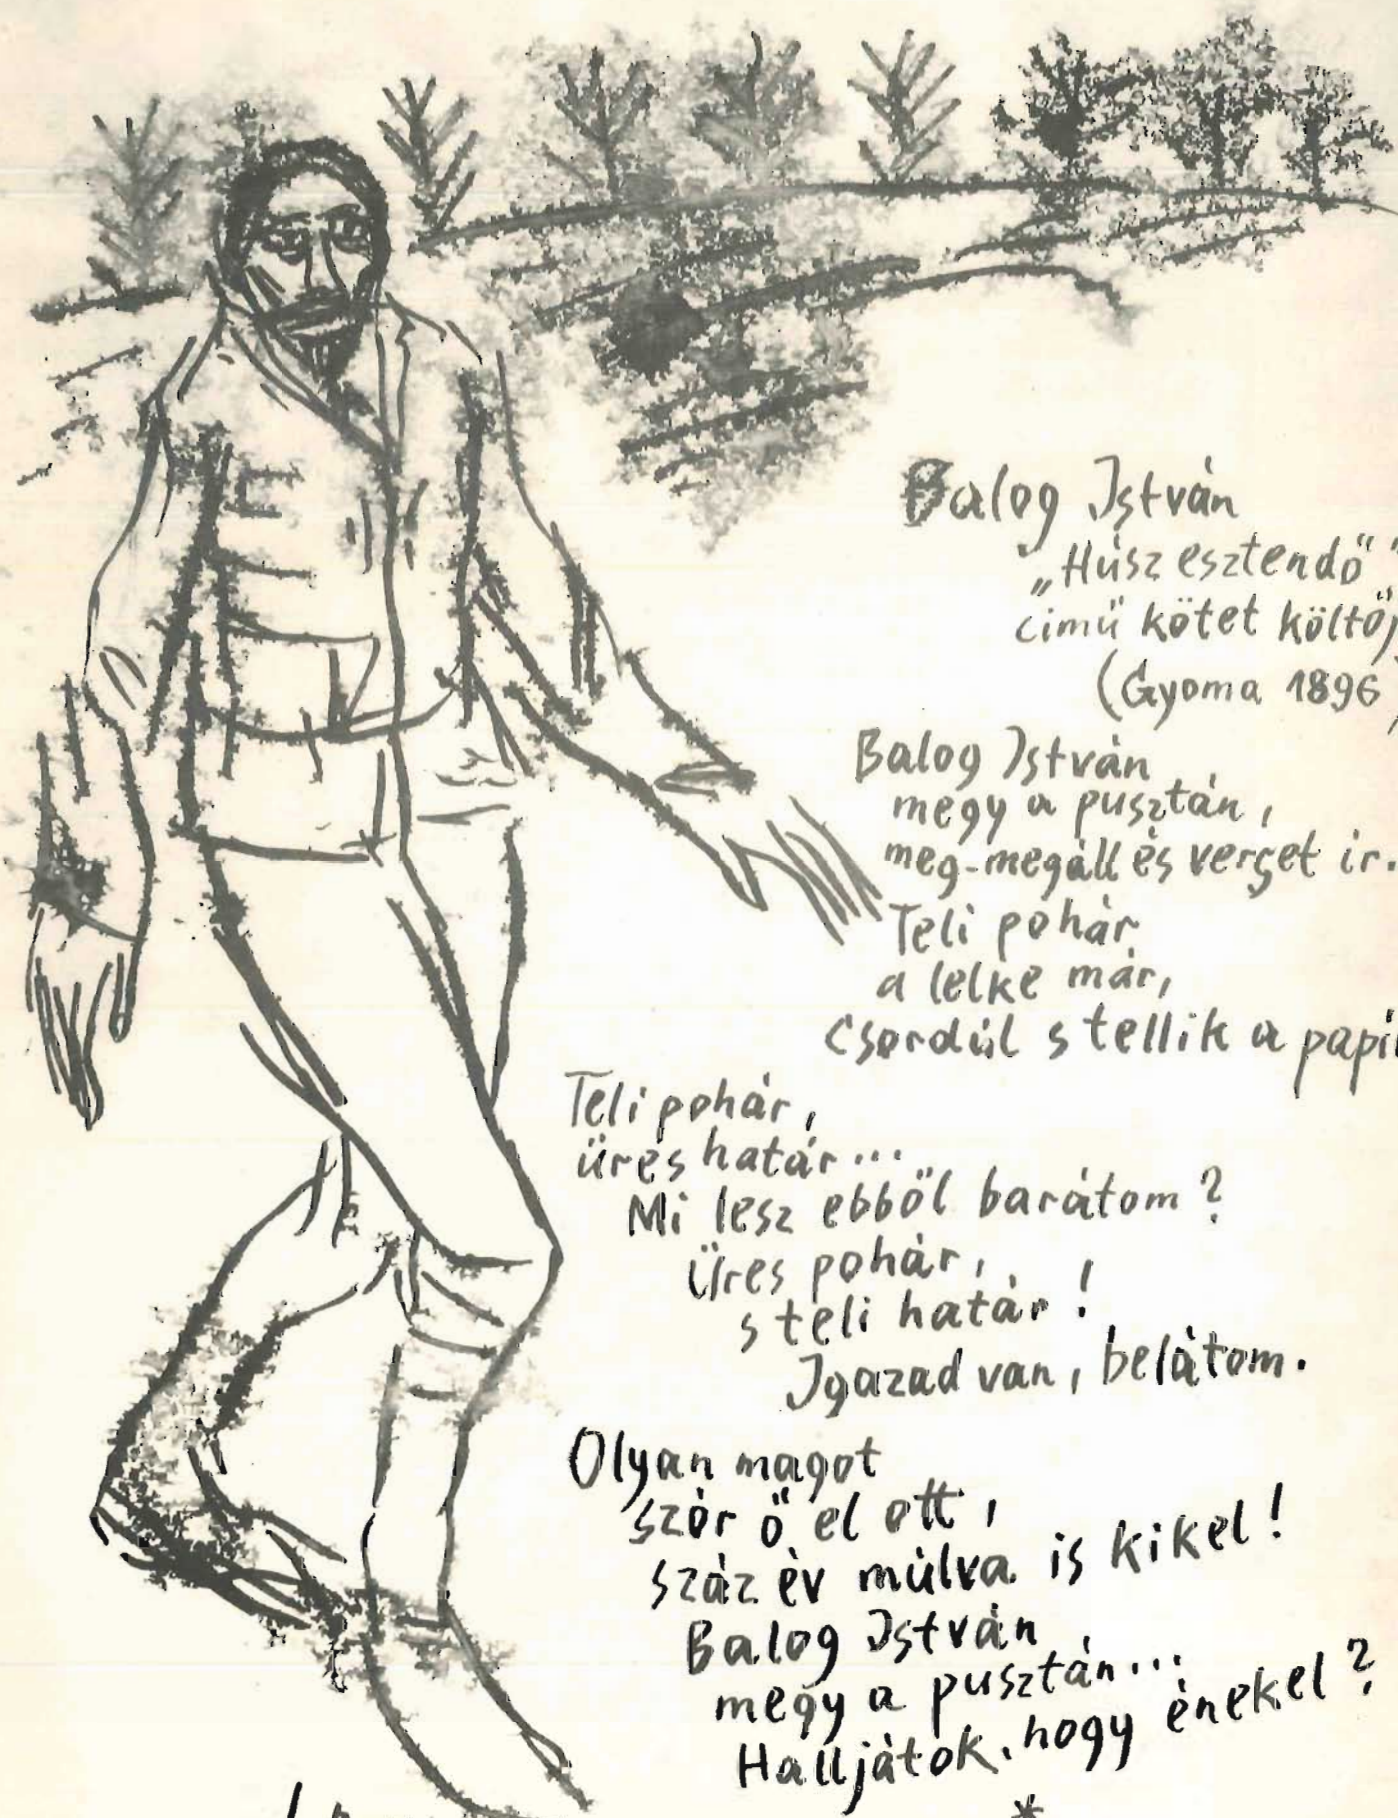 Balog István
„Húsz esztendő”
cimű kötet költőj
(Gyoma 1896)
Balog István
megy a pusztán,
meg-megáll és verset ir.
Teli pohár
a lelke már,
Csordúl s tellik a papi
Teli pohár,
üres határ...
Mi lesz ebből barátom?
Üres pohár,
s teli határ!
Igazad van, belátom.
Olyan magot
szór ő el ott,
száz év múlva is kikel!
Balog István
megy a pusztán...
Halljátok, hogy énekel?
*